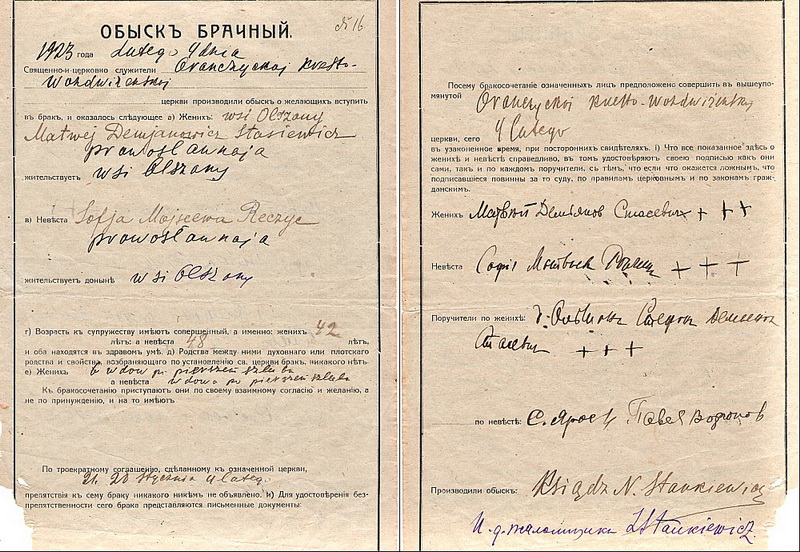 ОБЫСКЪ БРАЧНЫЙ.
№ 16
1923 года Lutego 4 dnia
Священно-и-церковно служители Oranczyckoj Kresto-
Wozdwiżenskoj
церкви производили обыскъ о желающихъ вступить
въ бракъ, и оказалось слѣдующее а) Женихъ: wsi Olszany
Matwej Demjanowicz Stasiewicz
prawosławnaja
жительствуетъ wsi Olszany
в) Невѣста Sofja Mojseewa Reczyc
prawosławnaja
жительствуетъ донынѣ wsi Olszany
г) Возрастъ къ супружеству имѣютъ совершенный, а именно: женихъ 42
лѣтъ: а невѣста 48 лѣтъ,
и оба находятся въ здравомъ умѣ. д) Родства между ними духовнаго или плотскаго
родства и свойства, возбраняющаго по установленію св. церкви бракъ, никакого нѣтъ.
е) Женихъ wdowiec po pierszem szlubie
а невѣста wdowa po pierszem szlubie
Къ бракосочетанію приступаютъ они по своему взаимному согласію и желанію, а
не по принужденію, и на то имѣютъ
По троекратному соглашенію, сдѣланному къ означенной церкви,
21, 28 stycznia 4 lutego
препятствія къ сему браку никакого никѣмъ не объявлено. И) Для удостовѣренія без-
препятственности сего брака представляются письменные документы:
Посему бракосочетаніе означенныхъ лицъ предположено совершить въ вышеупо-
мянутой Oranczyckoj Kresto-Wozdwiżenskoj
церкви, сего 4 lutego
въ узаконенное время, при постороннихъ свидѣтеляхъ. i) Что все показанное здѣсь о
женихѣ и невѣстѣ справедливо, въ томъ удостовѣряютъ своею подписью какъ они
сами, такъ и по каждомъ поручители, съ тѣмъ, что если что окажется ложнымъ, что
подписавшіеся повинны за то суду, по правиламъ церковнымъ и по законамъ граж-
данскимъ.
Женихъ Матѳей Демьянов Стасевич + + +
Невѣста Софія + + +
Поручители по женихѣ:
Стасевич + + +
по невѣстѣ: Павел
Производили обыскъ: Ksiądz N. Stankiewicz
И. д. псаломщика Stankiewicz